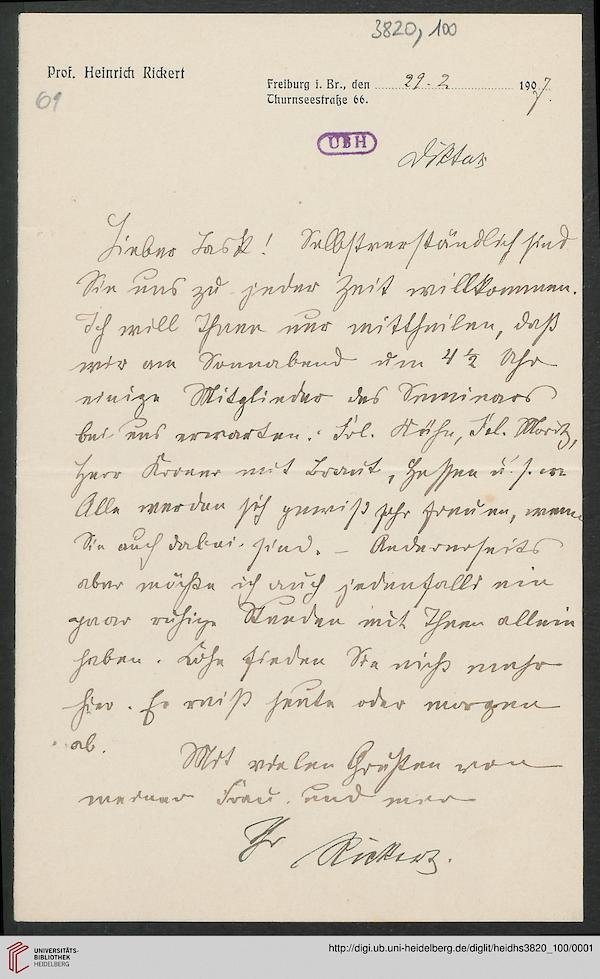 3820, 100
Prof. Heinrich Rickert
Freiburg i. Br., den 29. 2. 1907.
Thurnseestraße 66.
69
UBH
Diktat
Lieber Lask! Selbstverständlich sind
Sie uns zu jeder Zeit willkommen.
Ich will Ihnen nur mittheilen, daß
wir am Sonnabend um 4 1/2 Uhr
einige Mitglieder des Seminars
bei uns erwarten: Frl. Kühn, Frl. Moritz,
Herr Kroner mit Braut, Hessen u. s. w.
Alle werden sich gewiß sehr freuen, wenn
Sie auch dabei sind. – Andererseits
aber möchte ich auch jedenfalls ein
paar ruhige Stunden mit Ihnen allein
haben. finden Sie nicht mehr
hier. Er reist heute oder morgen
ab.
Mit vielen Grüßen von
meiner Frau und mir
Ihr Rickert.
UNIVERSITÄTS-
BIBLIOTHEK
HEIDELBERG
http://digi.ub.uni-heidelberg.de/diglit/heidhs3820_100/0001